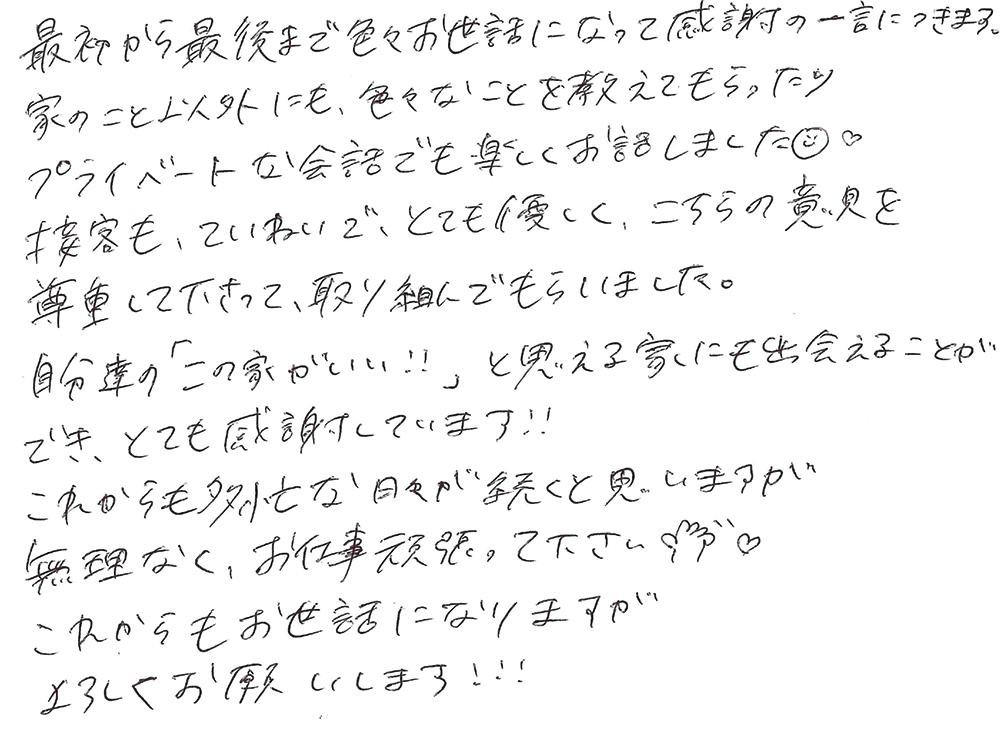 最初から最後まで色々お世話になって感謝の一言につきます。
家のこと以外にも、色々なことを教えてもらったり
プライベートな会話でも楽しくお話しました☺♡
接客も、ていねいで、とても優しく、こちらの意見を
尊重して下さって、取り組んでもらいました。
自分達の「この家がいい!!」と思える家にも出会えることが
でき、とても感謝しています!!
これからも多忙な日々が続くと思いますが
無理なく、お仕事頑張って下さい♡
これからもお世話になりますが
よろしくお願いします!!!